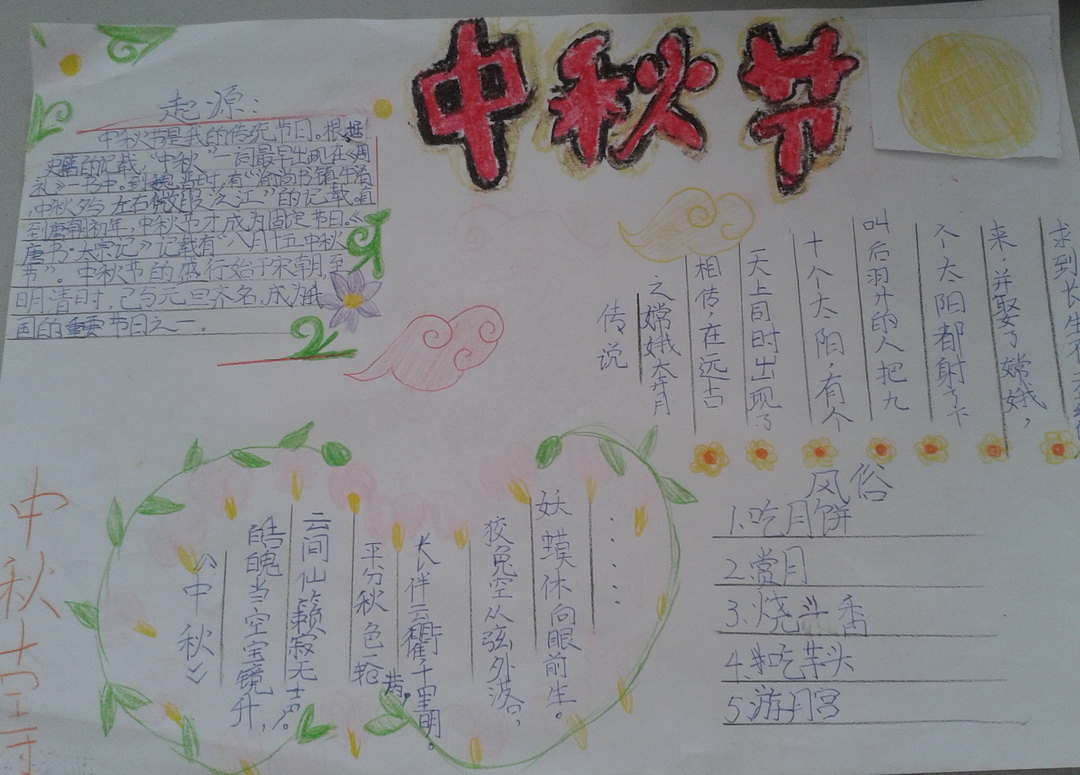 中秋节
起源:
中秋节是我的传统节日。根据
史籍的记载“中秋”一词最早出现在《周
礼》一书中。到魏晋时,有“谕尚书镇牛渚
,中秋夕与左右微服泛江”的记载。直
到唐朝初年,中秋中才成为固定节日。《
唐书·太宗记》记载有“八月十五中秋
节”。中秋节的盛行始于宋朝,至
明清时,已与元旦齐名,成为我
国的重要节日之一.
传说
之嫦娥奔月
相传,在远古
天上同时出现了
十个太阳,有个
叫后羿的人把九
个太阳都射了下
来,并娶了嫦娥,
求到长生不
风俗
1.吃月饼
2.赏月
3.烧斗香
4.吃芋头
5.游月宫
《中秋》
皓魄当空宝镜升,
云间仙籁寂无声。
平分秋色一轮满,
长伴云衢千里明。
狡兔空从弦外落,
妖蟆休向眼前生。
......
中秋